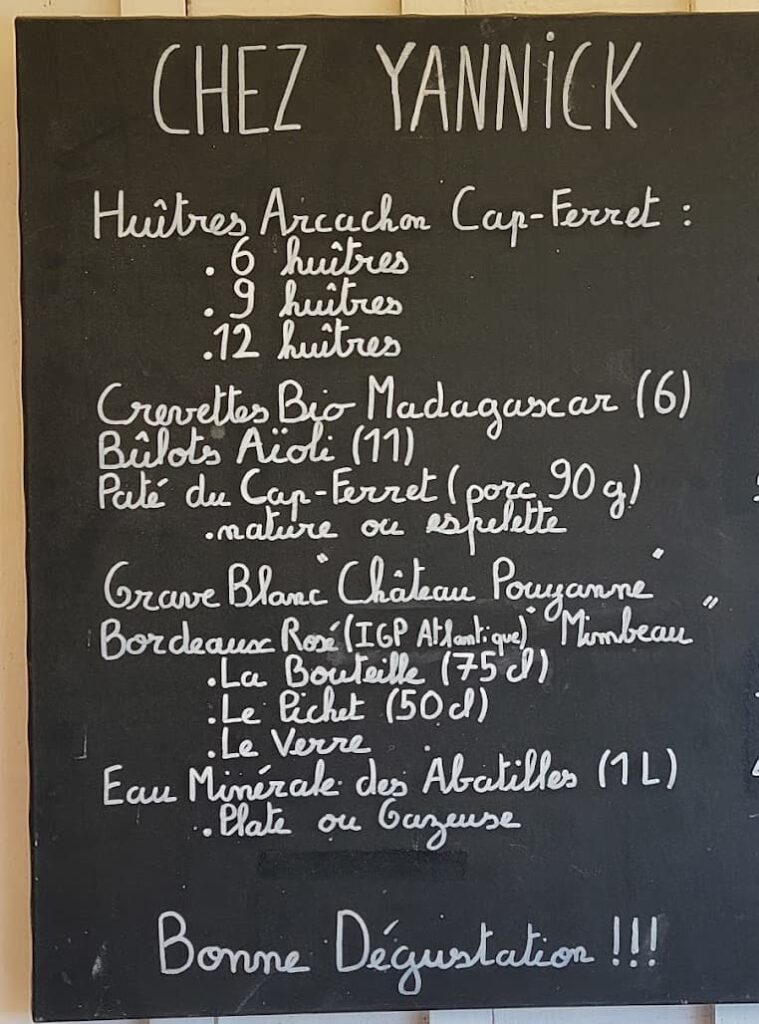 CHEZ YANNiCK
Huîtres Arcachon Cap-Ferret :
. 6 huîtres
. 9 huîtres
. 12 huîtres
Crevettes Bio Madagascar (6)
Bûlots Aïoli (11)
Paté du Cap-Ferret (porc 90 g)
. nature ou espelette
Grave Blanc "Château Pouyanne"
Bordeaux Rosé (IGP Atlantique) "Mimbeau"
. La Bouteille (75 cl)
. Le Pichet (50 cl)
. Le Verre
Eau Minérale des Abatilles (1 L)
. Plate ou Gazeuse
Bonne Dégustation !!!